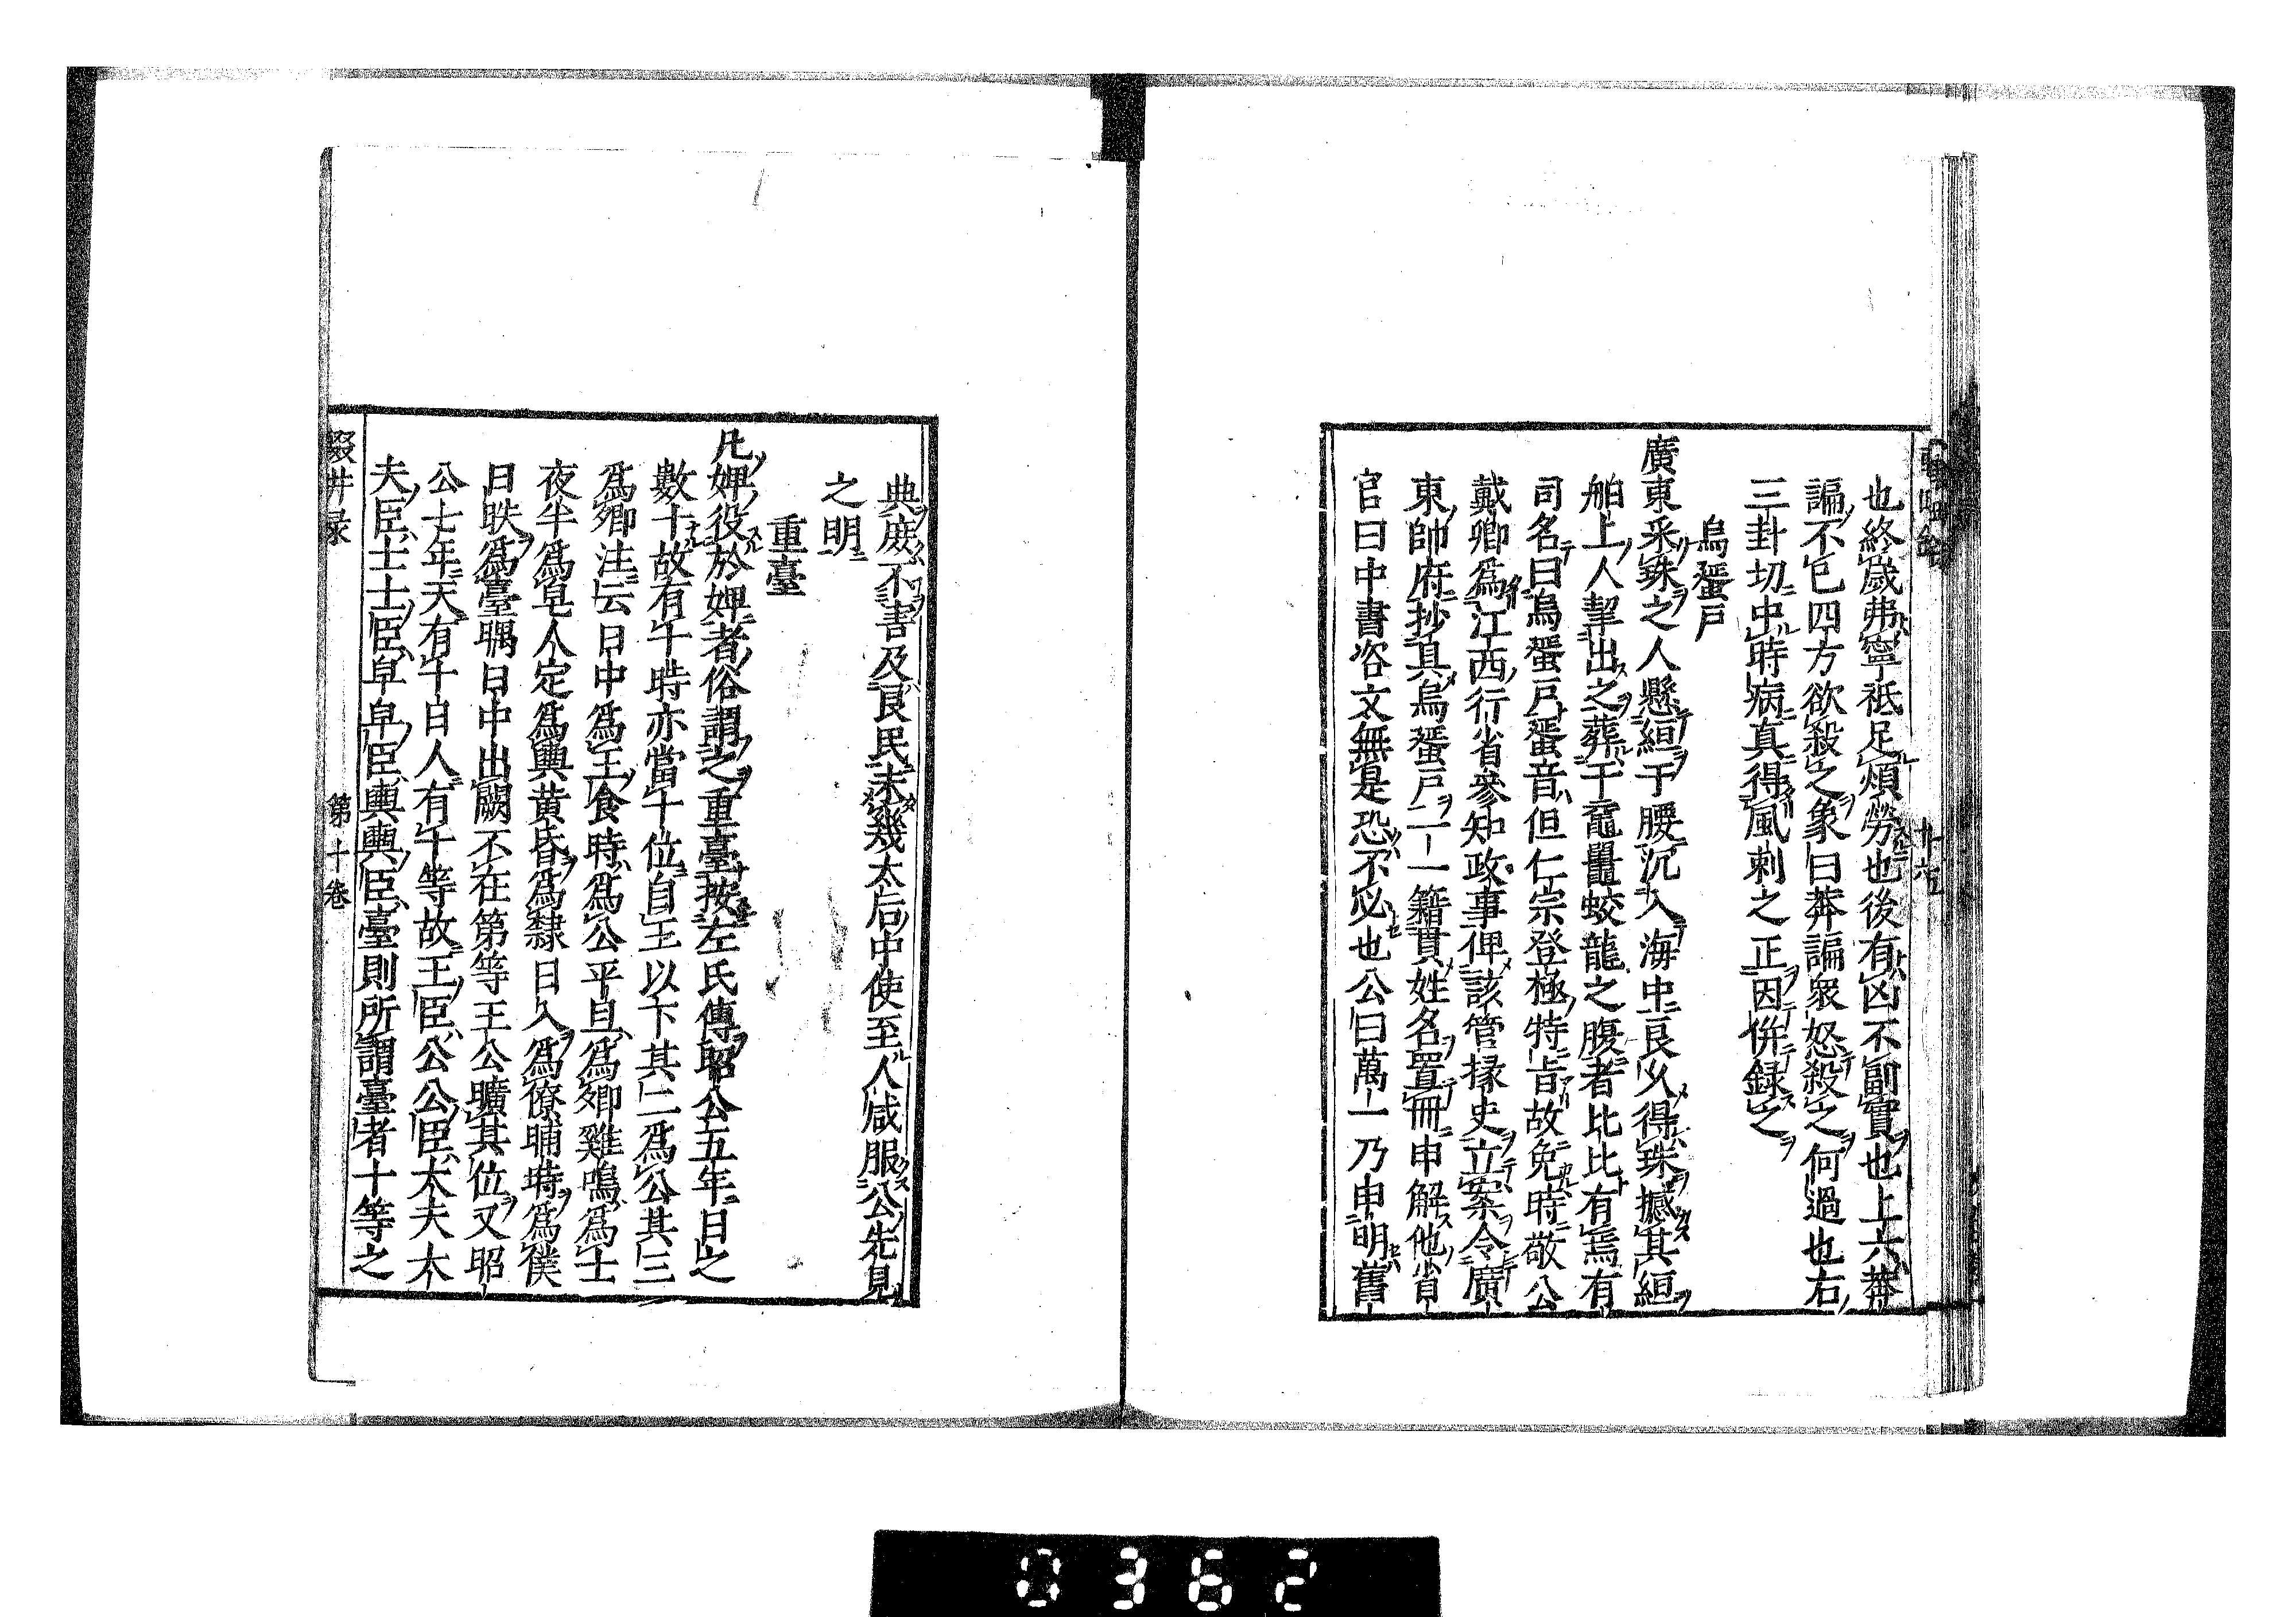 也終歲弗寧祗足煩勞也後有凶不副實也上六莽
諞不已四方欲殺之象曰莽諞衆怒殺之何過也右
三封切中時病真得風刺之正因併録之
烏蜑戸
廣東采珠之人懸絙于腰沉入海中良久得珠撼其絙
舶上人挈出之葬于黿鼉蛟龍之腹者比比有焉有
司名曰烏蜑戸蜑音但仁宗登極特旨故免時敬公
戴卿爲江西行省參知政事俾該管掾史立案令廣
東帥府抄具烏蜑戸一一籍貫姓名置冊申解他省
官曰中書咨文無是恐不必也公曰萬一乃申明舊
典庻不害及良民未幾太后中使至人咸服公先見
之明
重臺
凡婢役於婢者俗謂之重臺按左氏傳昭公五年日之
數十故有十時亦當十位自王以下其二爲公其三
爲卿注云日中爲王食時爲公平旦爲卿雞鳴爲士
夜半爲皂人定爲輿黄昏爲隸日入爲僚晡時爲僕
日昳爲臺隅日中出闕不在第等王公曠其位又昭
公七年天有十日人有十等故王臣公公臣大夫大
夫臣士士臣皁皁臣輿輿臣臺則所謂臺者十等之
輟畊録
第十卷
廿六